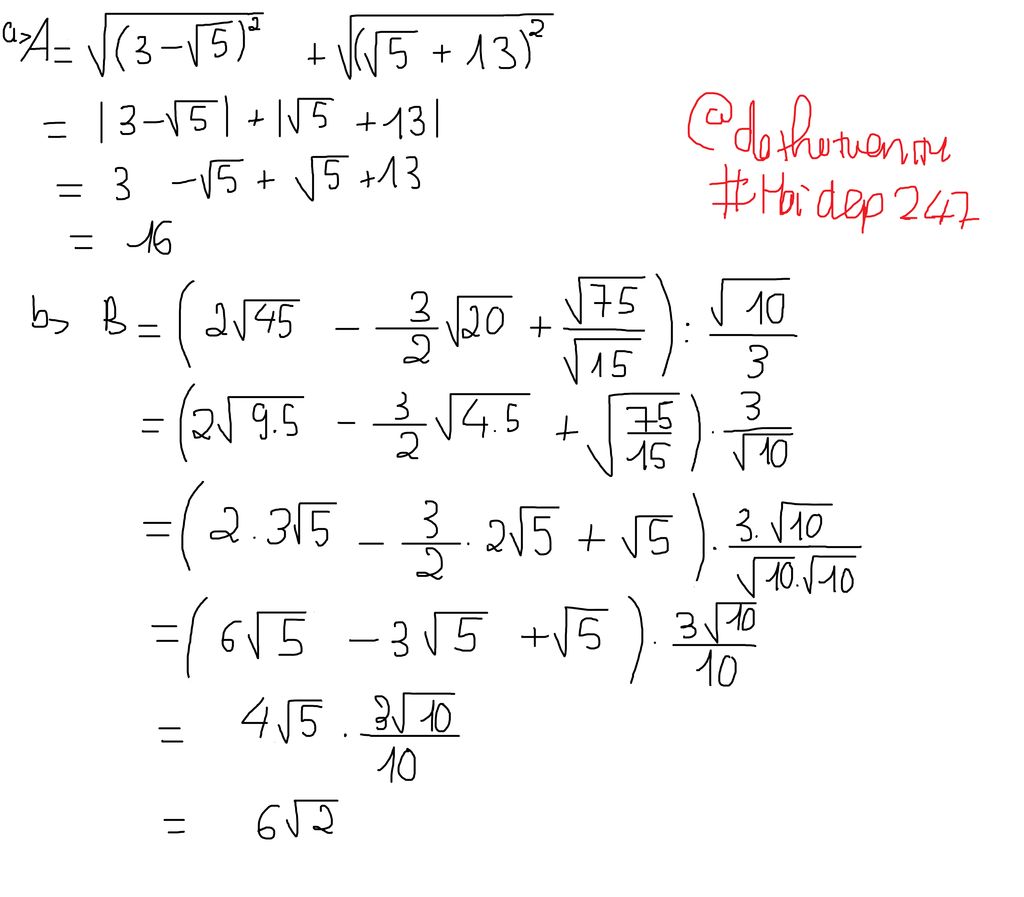 a> A = √(3 − √5)² + √(√5 + 13)²
= |3 − √5| + |√5 + 13|
= 3 − √5 + √5 + 13
= 16
#Hoidap247
b> B = (2√45 − 3/2 √20 + √75/√15) : √10/3
= (2√9.5 − 3/2 √4.5 + √75/15) . 3/√10
= (2 . 3√5 − 3/2 . 2√5 + √5) . 3.√10/√10.√10
= (6√5 − 3√5 + √5) . 3√10/10
= 4√5 . 3√10/10
= 6√2